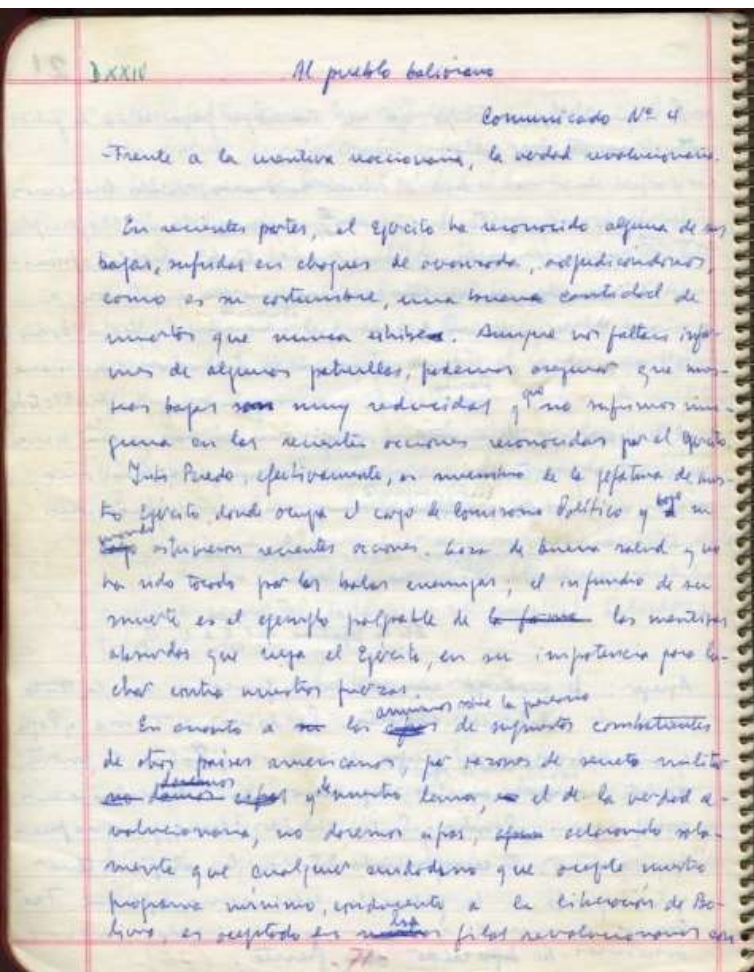 DXXIV Al pueblo boliviano
Comunicado Nº 4
-Frente a la mentira reaccionaria, la verdad revolucionaria.
En recientes partes, el Ejército ha reconocido alguna de sus
bajas, sufridas en choques de avanzada, adjudicándonos,
como es su costumbre, una buena cantidad de
muertos que nunca exhibe. Aunque nos faltan infor-
mes de algunas patrullas, podemos asegurar que nues-
tras bajas son muy reducidas y que no sufrimos nin-
guna en las recientes acciones reconocidas por el Ejército
Inti Peredo, efectivamente, es miembro de la jefatura de nues-
tro Ejército, donde ocupa el cargo de Comisario Político y bajo su
mando estuvieron recientes acciones. Goza de buena salud y no
ha sido tocado por las balas enemigas, el infundio de su
muerte es el ejemplo palpable de la forma las mentiras
absurdas que riega el Ejército, en su impotencia para lu-
char contra nuestras fuerzas.
En cuanto a los anuncios sobre la presencia de supuestos combatientes
de otros países americanos, por razones de secreto militar
y de nuestro lema, el de la verdad re-
volucionaria, no daremos cifras, aclarando sola-
mente que cualquier ciudadano que acepte nuestro
programa mínimo, conducente a la liberación de Bo-
livia, es aceptado en las filas revolucionarias con